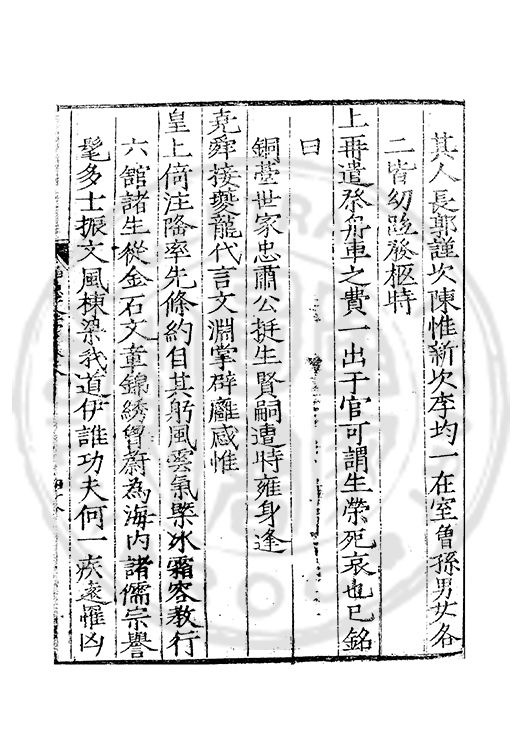 其人長郭謹次陳惟新次李均一在室曾孫男女各
二皆幼臨發柩時
上再遣祭舟車之費一出于官可謂生榮死哀也已銘
曰
銅臺世家忠肅公挺生賢嗣遭時雍身逢
堯舜接夔龍代言文淵掌辟廱感惟
皇上倚注隆率先條約自其躬風雲氣槩冰霜容教行
六舘諸生從金石文章錦綉胷蔚為海内諸儒宗譽
髦多士振文風棟梁我道伊誰功夫何一疾遽罹凶